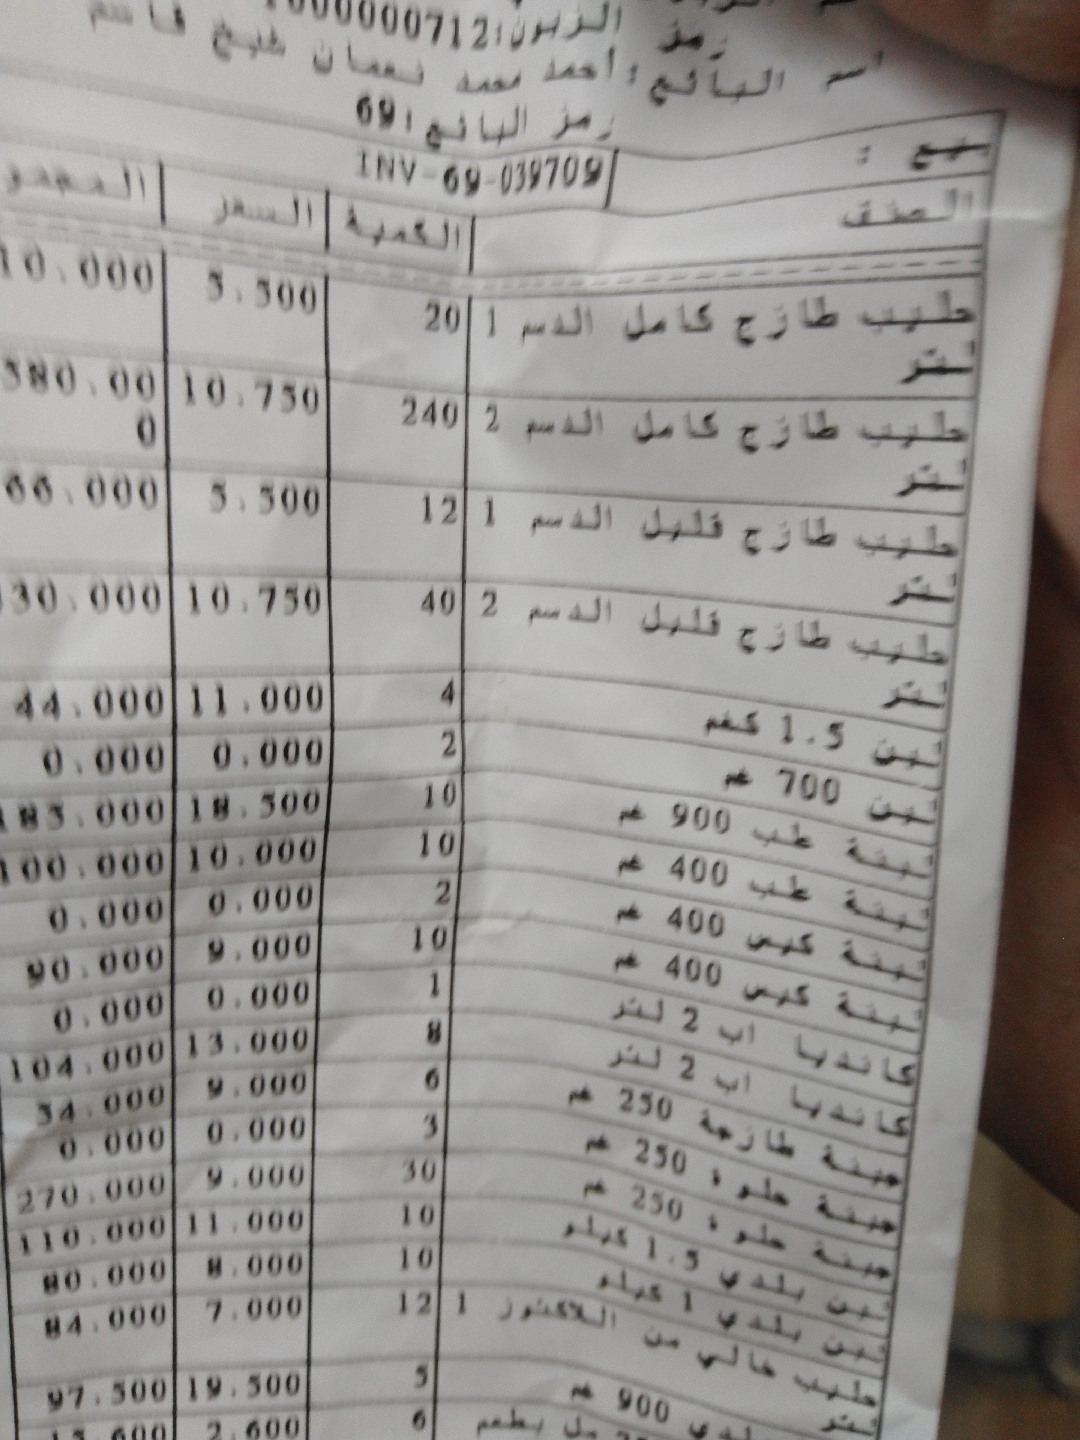 رمز الزبون:1000000712
اسم البائع: أحمد محمد نعمان شيخ قاسم
رمز البائع:69
بيع : INV-69-039709
الصنف الكمية السعر المجمو
حليب طازج كامل الدسم 1 20 5.500 10.000
لتر
حليب طازج كامل الدسم 2 240 10.750 580.00
لتر 0
حليب طازج قليل الدسم 1 12 5.500 66.000
لتر
حليب طازج قليل الدسم 2 40 10.750 30.000
لتر
لبن 1.5 كغم 4 11.000 44.000
لبن 700 غم 2 0.000 0.000
لبنة طب 900 غم 10 18.500 185.000
لبنة طب 400 غم 10 10.000 100.000
لبنة كيس 400 غم 2 0.000 0.000
لبنة كيس 400 غم 10 9.000 90.000
كانديا اب 2 لتر 1 0.000 0.000
كانديا اب 2 لتر 8 13.000 104.000
جبنة طازجة 250 غم 6 9.000 54.000
جبنة حلوة 250 غم 3 0.000 0.000
جبنة حلوة 250 غم 30 9.000 270.000
لبن بلدي 1.5 كيلو 10 11.000 110.000
لبن بلدي 1 كيلو 10 8.000 80.000
حليب خالي من اللاكتوز 1 12 7.000 84.000
لتر
لدي 900 غم 5 19.500 97.500
مل بطعم 6 2.600 15.600